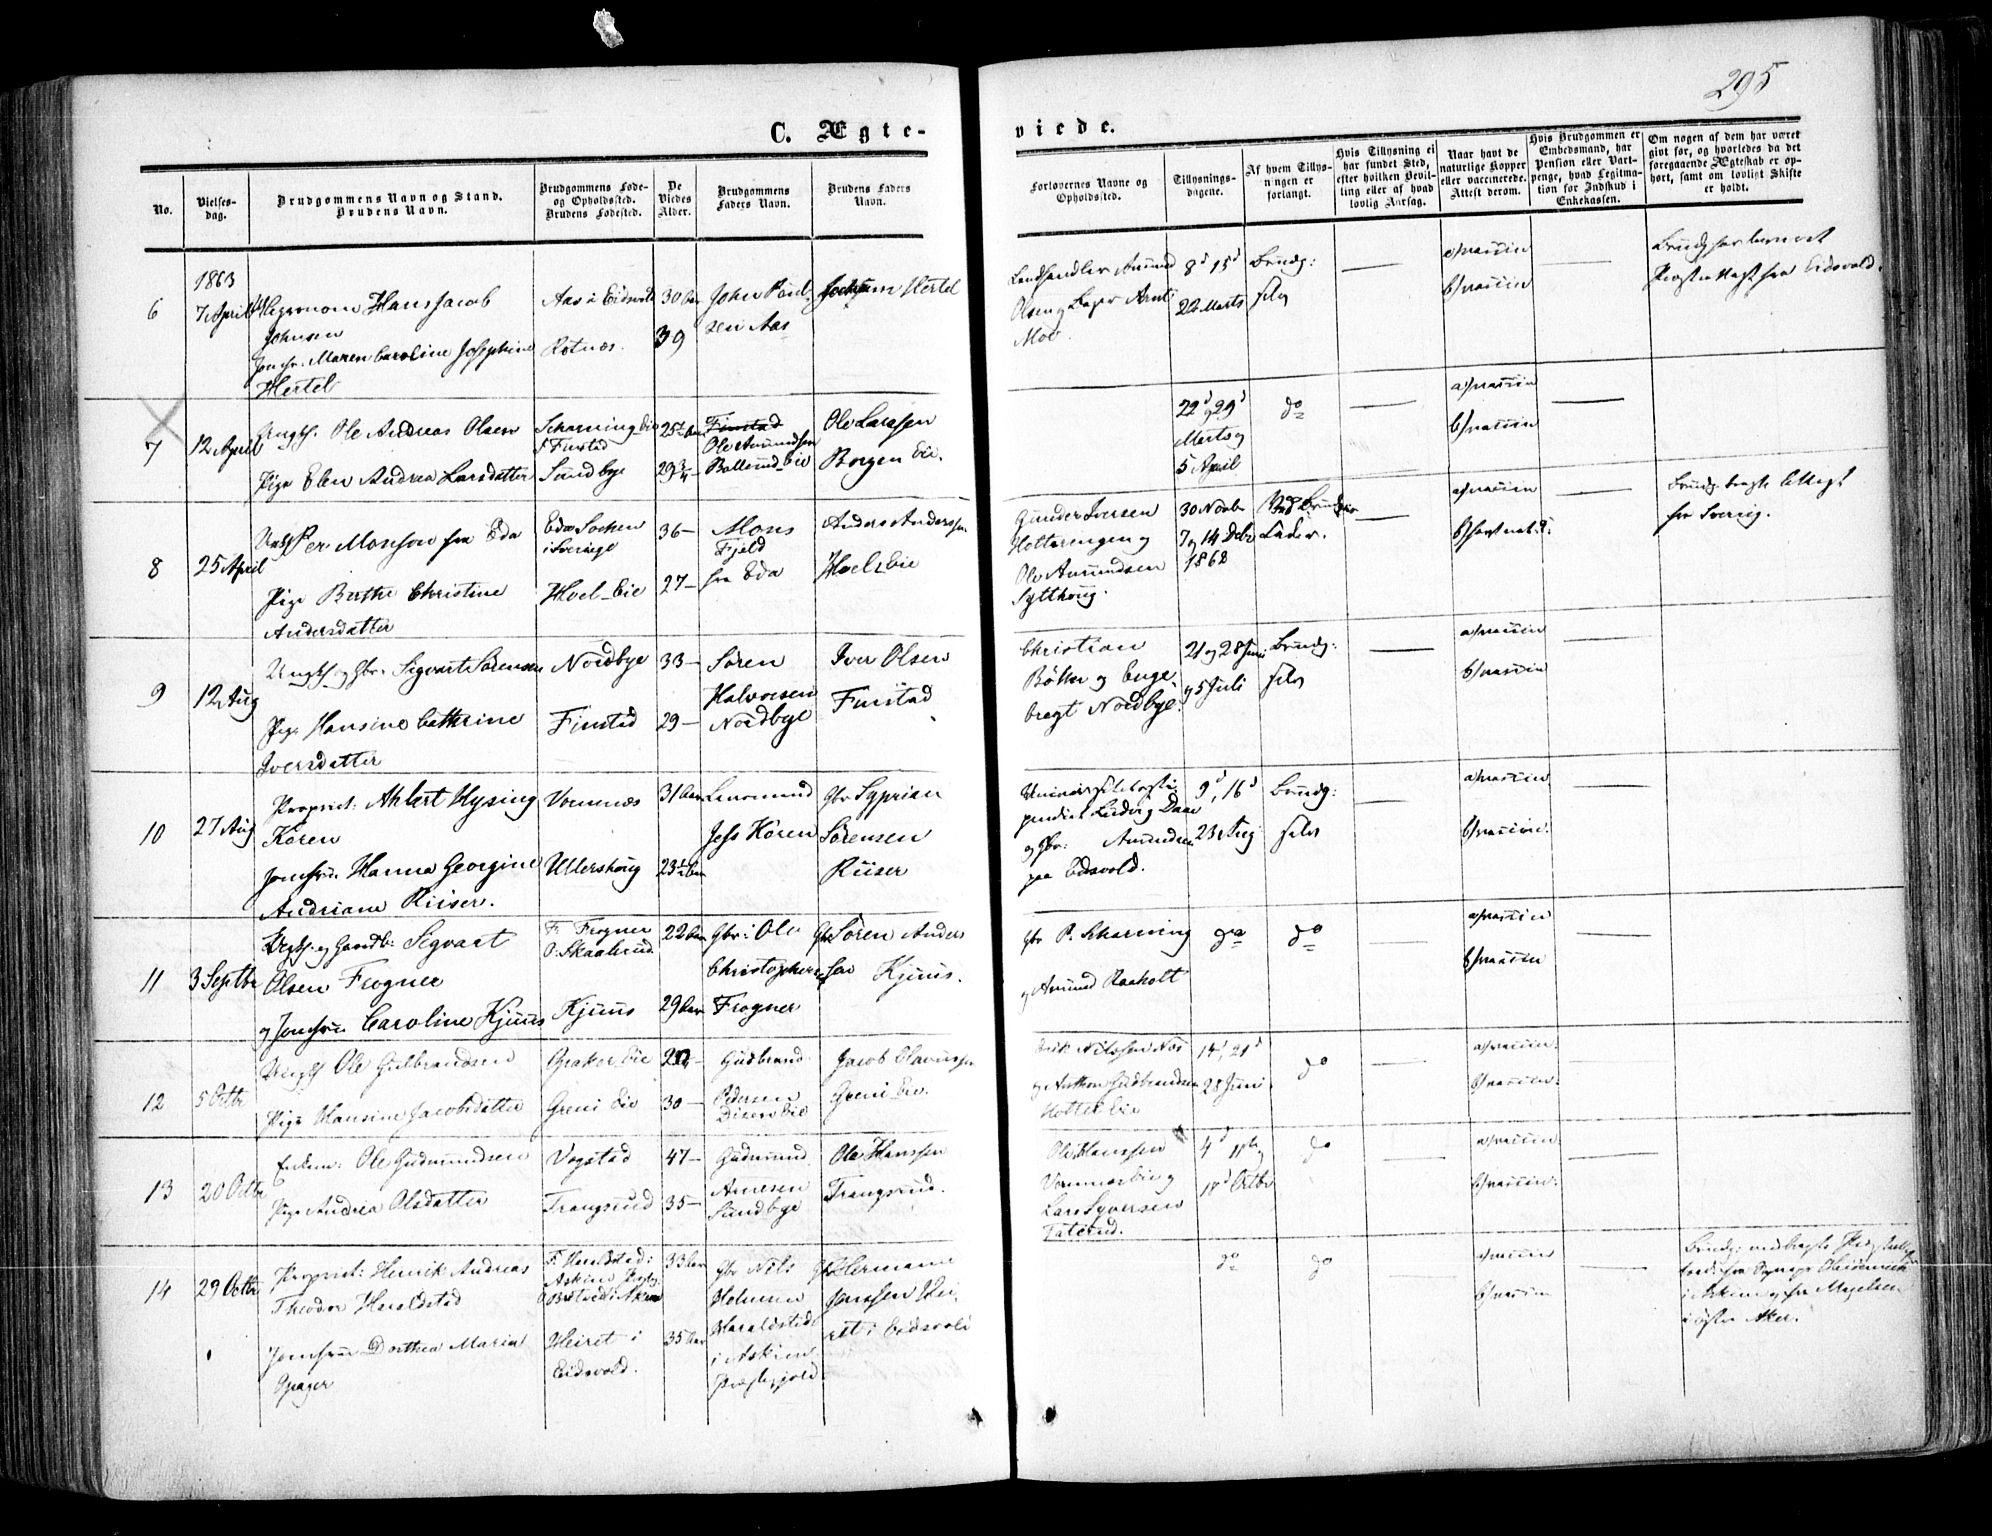 295
C. Ægte-
viede.
No.
Vielses-
dag.
Brudgommens Navn og Stand.
Brudens Navn.
Brudgommens Føde-
og Opholdssted.
Brudens Fødested.
De
Viedes
Alder.
Brudgommens
Faders Navn.
Brudens Faders
Navn.
Forlovernes Navne og
Opholdssted.
Tillysnings-
dagene.
Af hvem Tillys-
ningen er
forlangt.
Hvis Tillysning ei
har fundet Sted,
efter hvilken Bevil-
ling eller af hvad
lovlig Aarsag.
Naar havt de
naturlige Kopper
eller vaccinerede.
Attest derom.
Hvis Brudgommen er
Embedsmand, har
Pension eller Vart-
penge, hvad Legitima-
tion for Indskud i
Enkekassen.
Om nogen af dem har været
givt før, og hvorledes da det
foregaaende Ægteskab er op-
hørt, samt om lovligt Skifte
er holdt.
1863
6
7 April
Hans Jacob
Johnsen
Jomfr. Maren Caroline Josephine
Hertel
Aas i Eidsvold
Rotnæs.
30 Aar
39
John Poul-
sen Aas
Jochum Hertel
Landhandler Amund
Olsen og
Moe.
8d 15d
22 Marts
Brudg:
selv
a/vaccin
b/vaccin
fra Eidsvold.
7
12 April
Ungk. Ole Andreas Olsen
Pige Elen Andrea Larsdatter
Schærning Eie
F Finstad
Sundbye
25
29 3/4
Finstad
Ole Amundsen
Ballerud Eie
Ole Larssen
Borgen Eie.
22d og 29d
Marts og
5 April
do
a/vaccin
b/vaccin
8
25 April
Ungk Per Monson fra Eda
Pige Berthe Christine
Andersdatter
Eda Sochen
i Sverige
Hoel Eie
36
27
Mons
Fjeld
fra Eda
Anders Anderssen
Hoels Eie
Gunder Iversen
Hotterengen og
Ole Amundsen
30 Novbr
7 og 14 Debr
1862
a/vaccin
Brudg. bragte Attest
fra Sverrig.
9
12 Aug
Ungk og Gbr. Sigvart Sørensen
Pige Hansine Cathrine
Iversdatter
Nordbye
Finstad
33
29
Søren
Halvorsen
Nordbye
Iver Olsen
Finstad
Christian
Bøhler og Enge-
bregt Nordbye.
21 og 28 Juni
og 5 Juli
Brudg:
selv
a/vaccin
b/vaccin
10
27 Aug
Propriet: Ahlert Hysing
Køren
Jomfru Hanna Georgine
Andriane Riiser.
Vormnæs
Ullershoug
31 Aar
Jess Køren
Gbr Syprian
Sørensen
Riiser
Ludvig Daae
og Gbr: Amundsen
paa Eidsvold.
9d, 16d
23 Aug
Brudg:
selv
a/vaccin
b/vaccin.
11
3 Septbr
Ungk. og Handl: Segvart
Olsen Frogner
og Jomfru Caroline Kjuus
F. Frogner
O. Skaalerud
Kjuus
22 Aar
29 Aar
Gbr: Ole
Christophersen
Frogner
Gbr Søren Anders
sen Kjuus.
Gbr P. Scharning
og Amund Raaholt
do
do
a/vaccin
b/vaccin
12
5 Octbr
Ungk Ole Gulbrandsen
Pige Hansine Jacobsdatter
Graker Eie
Greni Eie
30
Gudbrand
Pedersen
Disen Eie
Jacob Olavessen
Greni Eie.
Erik Nilssen Nos
og Anthon Gudbrandsen
Holter Eie
14d, 21d
28 Juni
do
a/vaccin.
b/vaccin.
13
20 Octbr
Enkem: Ole Gudmundsen
Pige Andrea Olsdatter
Vogstad
Trangsrud
47
35
Gudmund
Arnesen
Sundbye
Ole Hanssen
Trangsrud.
Ole Hanssen
Vormnæs Eie og
Lars Syversen
Taterud.
4d 11te og
18d Octbr
do
a/vaccin
b/vaccin.
14
29 Octbr
Propriet: Henrik Andreas
Theodor Heraldstad
Jomfru Dorthea Maria
Spager
F. Heraldstad i
Askim
Heiret i
Eidsvold.
33 Aar
35 Aar
Gbr Nils
Holmsen
Haraldstad
i Askim
Præstegjeld
Gbr Hermann
Janssen Hei-
ret i Eidsvold
do
do
a/vaccin
b/vaccin
i Askim og fra
i østre Aker.